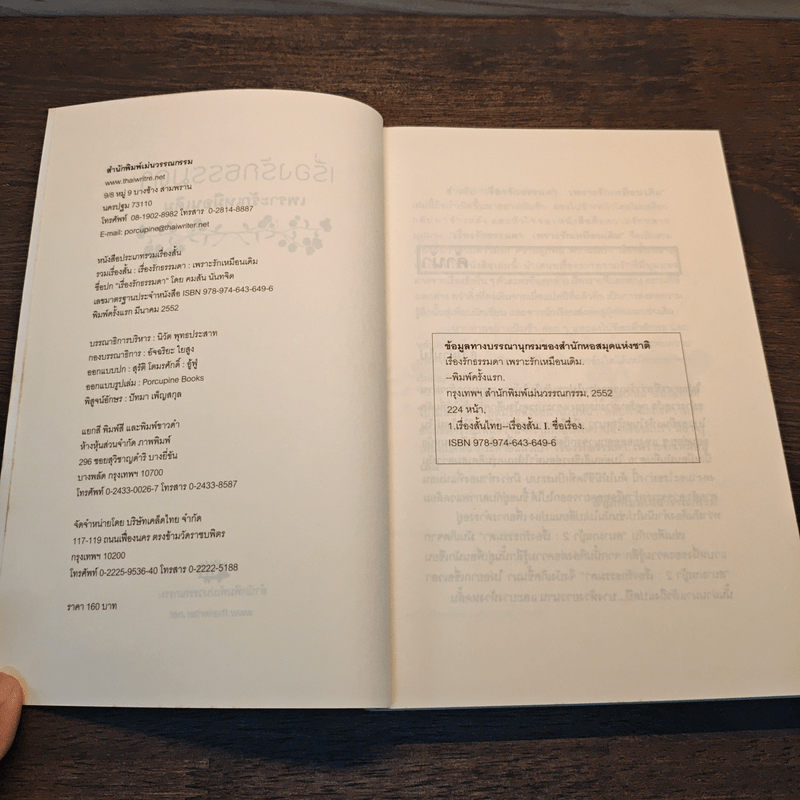 สำนักพิมพ์เม่นวรรณกรรม
www.thaiwritre.net
9/8 หมู่ 9 บางช้าง สามพราน
นครปฐม 73110
โทรศัพท์ 08-1902-8982 โทรสาร 0-2814-8887
E-mail: porcupine@thaiwriter.net
หนังสือประเภทรวมเรื่องสั้น
รวมเรื่องสั้น : เรื่องรักธรรมดา : เพราะรักเหมือนเดิม
ชื่อปก "เรื่องรักธรรมดา" โดย คมสัน นันทจิต
เลขมาตรฐานประจำหนังสือ ISBN 978-974-643-649-6
พิมพ์ครั้งแรก มีนาคม 2552
บรรณาธิการบริหาร : นิวัต พุทธประสาท
กองบรรณาธิการ : อัจฉริยะ ใยสูง
ออกแบบปก : สุรัติ โตมรศักดิ์ : อู้ฟู่
ออกแบบรูปเล่ม : Porcupine Books
พิสูจน์อักษร : ปัทมา เพ็ญสกุล
แยกสี พิมพ์สี และพิมพ์ขาวดำ
ห้างหุ้นส่วนจำกัด ภาพพิมพ์
296 ซอยสุวิชาญดำริ บางยี่ขัน
บางพลัด กรุงเทพฯ 10700
โทรศัพท์ 0-2433-0026-7 โทรสาร 0-2433-8587
จัดจำหน่ายโดย บริษัทเคล็ดไทย จำกัด
117-119 ถนนเฟื่องนคร ตรงข้ามวัดราชบพิตร
กรุงเทพฯ 10200
โทรศัพท์ 0-2225-9536-40 โทรสาร 0-2222-5188
ราคา 160 บาท
ข้อมูลทางบรรณานุกรมของสำนักหอสมุดแห่งชาติ
เรื่องรักธรรมดา เพราะรักเหมือนเดิม.
--พิมพ์ครั้งแรก.
กรุงเทพฯ สำนักพิมพ์เม่นวรรณกรรม, 2552
224 หน้า,
1.เรื่องสั้นไทย--เรื่องสั้น. I. ชื่อเรื่อง.
ISBN 978-974-643-649-6